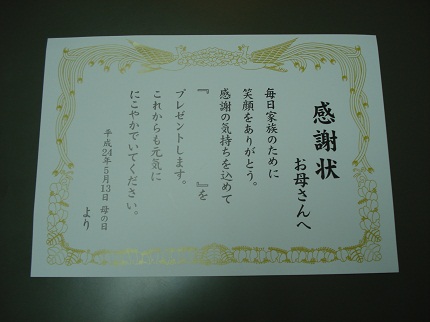 感謝状
お母さんへ
毎日家族のために
笑顔をありがとう。
感謝の気持ちを込めて
『　　　　』を
プレゼントします。
これからも元気に
にこやかでいてください。
平成24年5月13日 母の日
より